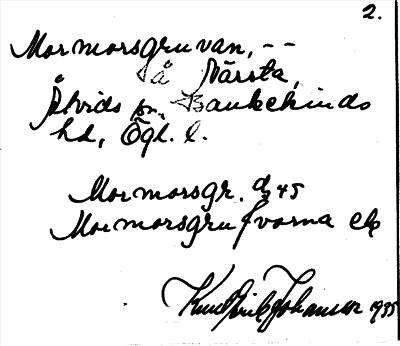 2.
Mormorsgruvan, --
å Närsta,
Åtvids sn. Bankekinds
hd, Ögl. l.
Mormorsgr. dz 45
Mormorsgrufvorna ek
Knut Erik Johansson 1935